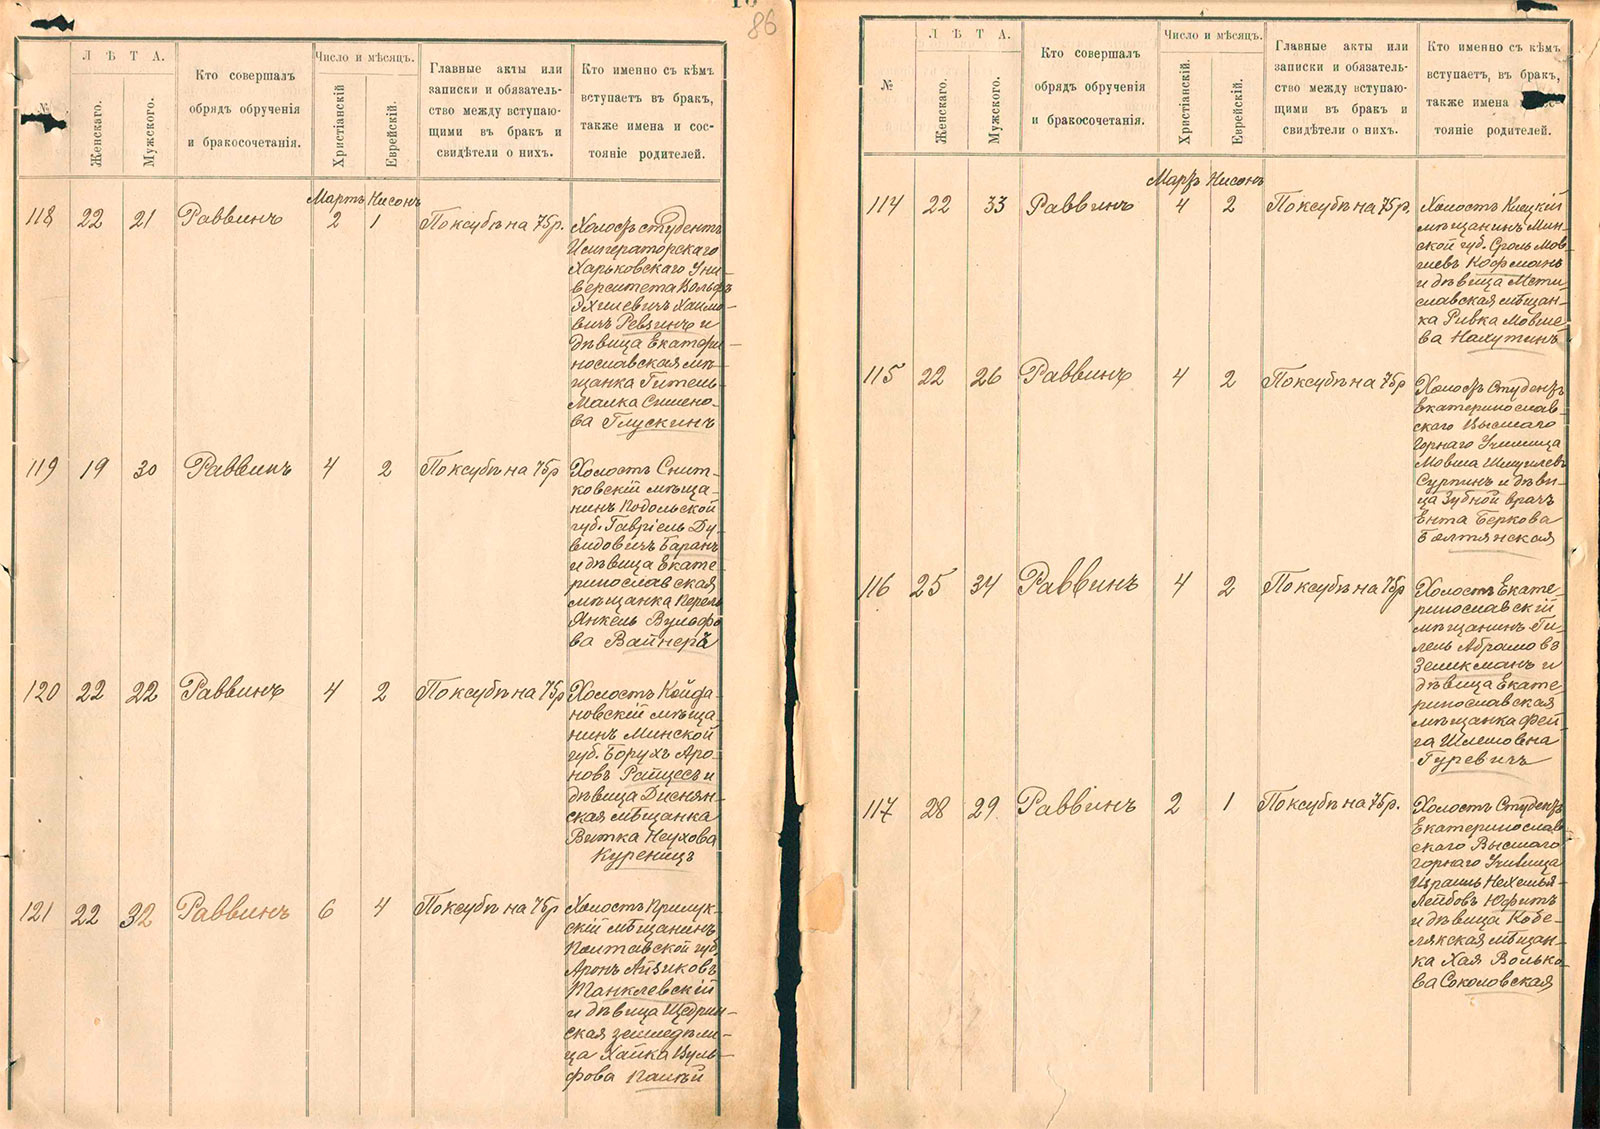 86
№
ЛѢТА.
Женскаго.
Мужского.
Кто совершалъ
обрядъ обрученія
и бракосочетанія.
Число и мѣсяцъ.
Христіанскій
Еврейскій.
Главные акты или
записки и обязатель-
ство между вступаю-
щими въ бракъ и
свидѣтели о нихъ.
Кто именно съ кѣмъ
вступаетъ въ бракъ,
также имена и сос-
тояніе родителей.
Мартъ Нисонъ
118 22 21 Раввинъ 2 1 По ксубѣ на 75р.
Холостъ студентъ
Императорскаго
Харьковскаго Уни-
верситета Вольфъ
Эхилевичъ Хаимо-
вичъ Ревзинъ и
дѣвица Екатери-
нославская мѣ-
щанка Гитель-
Малка Симено-
ва Глускинъ
119 19 30 Раввинъ 4 2 По ксубѣ на 75р
Холостъ Снит-
ковскій мѣща-
нинъ Подольской
губ. Гавріель Ду-
видовичъ Баранъ
и дѣвица Екате-
ринославская
мѣщанка Перель
Янкель Вульфо
ва Вайнеръ
120 22 22 Раввинъ 4 2 По ксубѣ на 75р
Холостъ Койда-
новскій мѣща-
нинъ Минской
губ. Борухъ Аро-
новъ Райцесъ и
дѣвица Диснян-
ская мѣщанка
Витка Неухова
Куреницъ
121 22 32 Раввинъ 6 4 По ксубѣ на 75р
Холостъ Прилук-
скій мѣщанинъ
Полтавской губ.
Аронъ Айзиковъ
Танклевскій
и дѣвица Щедрин-
ская земледѣли-
ца Хайка Вуль-
фова Палѣй
№
ЛѢТА.
Женскаго.
Мужскаго.
Кто совершалъ
обрядъ обрученія
и бракосочетанія.
Число и мѣсяцъ.
Христіанскій.
Еврейскій.
Главные акты или
записки и обязатель-
ство между вступаю-
щими въ бракъ и
свидѣтели о нихъ.
Кто именно съ кѣмъ
вступаетъ, въ бракъ,
также имена
тояніе родителей.
Мартъ Нисонъ
114 22 33 Раввинъ 4 2 По ксубѣ на 75р.
Холостъ Клецкій
мѣщанинъ Мин-
ской губ. Сроль Мов
шевъ Кофманъ
и дѣвица Мсти-
славская мѣщан-
ка Ривка Мовше
ва Налутинъ
115 22 26 Раввинъ 4 2 По ксубѣ на 75р
Холостъ Студентъ
Екатеринослав-
скаго Высшаго
Горнаго Училища
Мовша Шмуилевъ
Сурпинъ и дѣви-
ца Зубной врачъ
Ента Беркова
Балтянская
116 25 34 Раввинъ 4 2 По ксубѣ на 75р
Холостъ Екате-
ринославскій
мѣщанинъ Ги-
лель Абрамовъ
Зеликманъ и
дѣвица Екате-
ринославская
мѣщанка Фей
га Шлемовна
Гуревичъ
117 28 29 Раввинъ 2 1 По ксубѣ на 75р.
Холостъ Студентъ
Екатеринослав-
скаго Высшаго
Горнаго Училища
Израиль Нехемья-
Лейбовъ Юфитъ
и дѣвица Кобе-
лякская мѣщан-
ка Хая Волько-
ва Соколовская